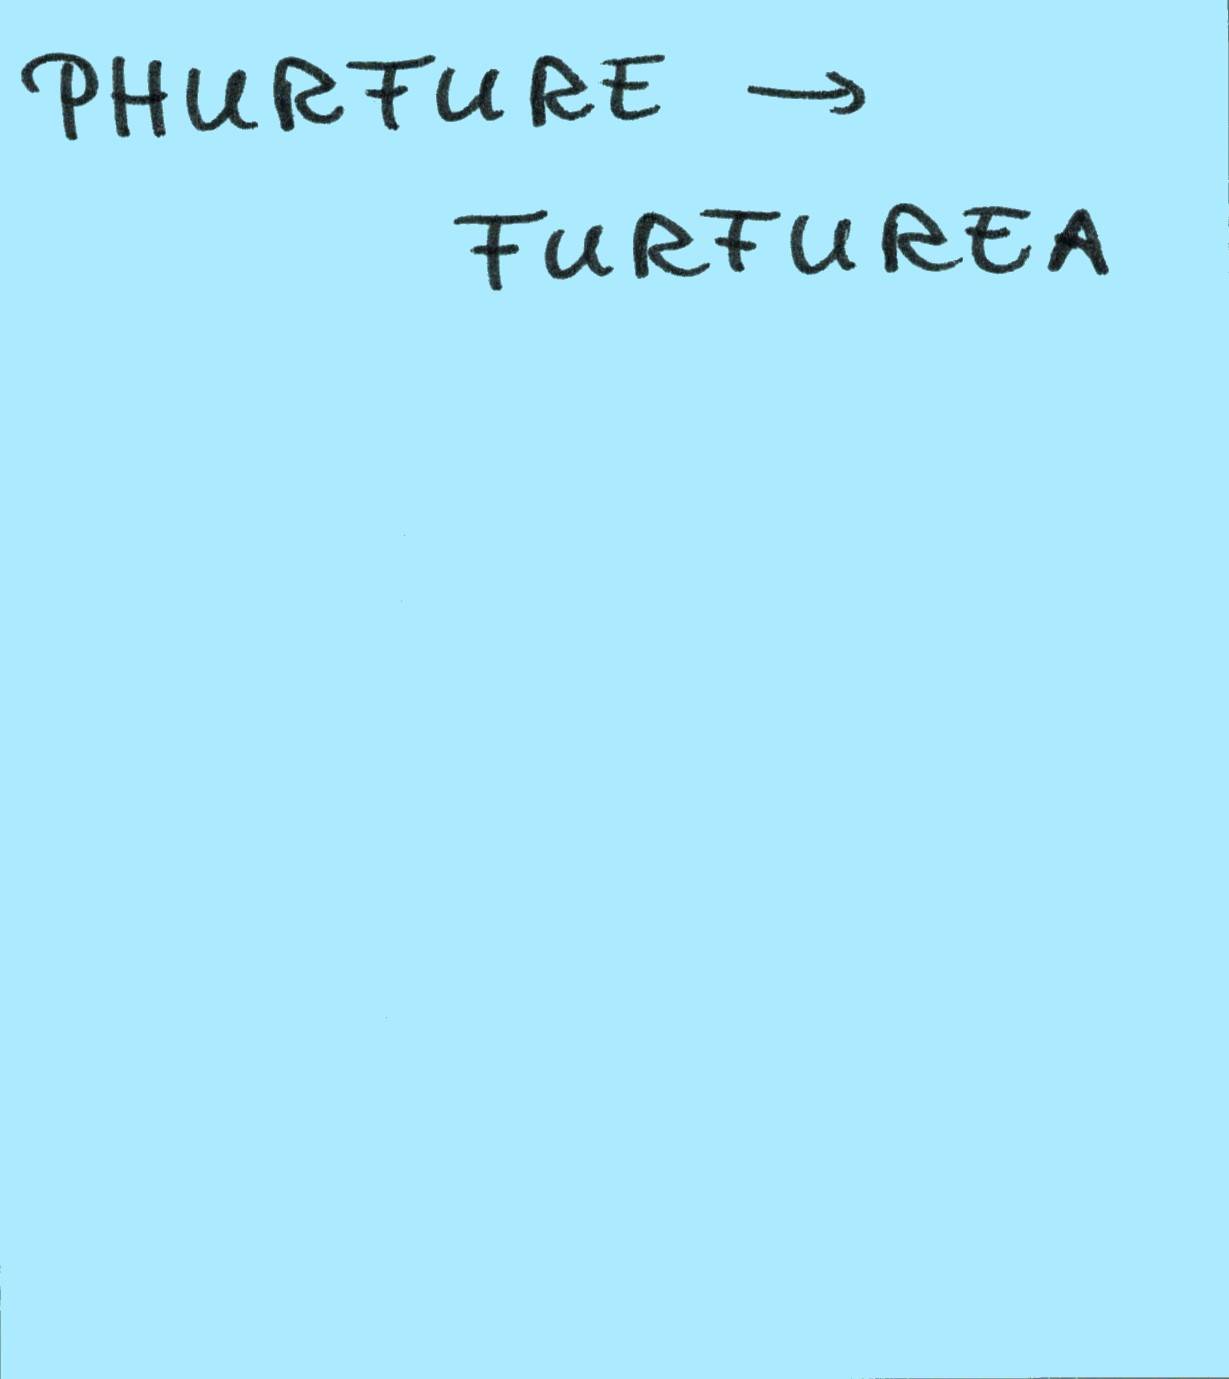 PHURFURE →
FURFUREA